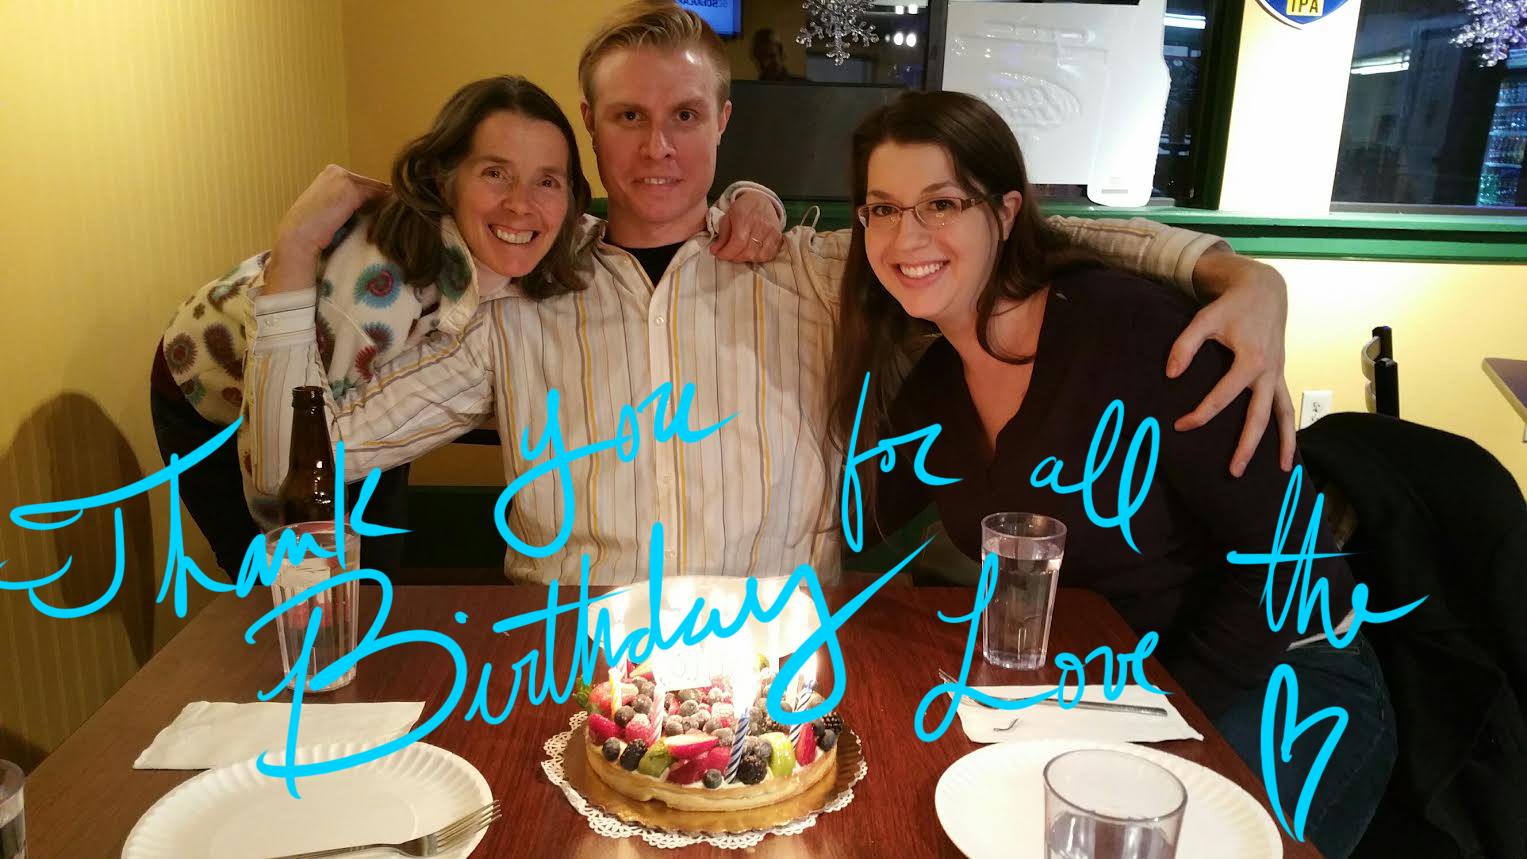 IPA
Thank you for all the
Birthday Love